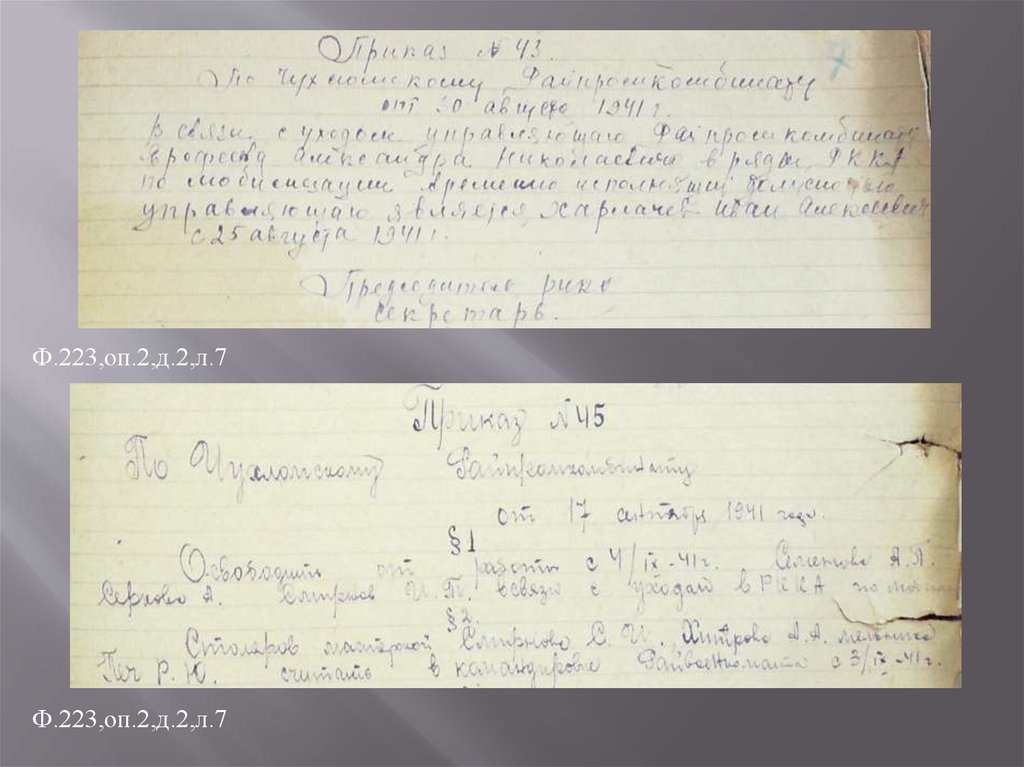 Приказ № 43.
7
По Чухломскому Райпромкомбинату
от 30 августа 1941 г.
В связи с уходом управляющаго Райпромкомбината
Александра Николаевича в ряды РККА
по мобилизации временно исполнящий должностью
управляющаго является Харлачев Иван Алексеевич
с 25 августа 1941 г.
Председатель рика
Секретарь.
Ф.223,оп.2,д.2,л.7
Приказ № 45
По Чухломскому Райпромкомбинату
от 17 сентября 1941 года.
§ 1
Освободить от работы с 4/IX-41 г. Семенова А.П.
А. Смирнов И.П. в связи с уходом в РККА по
§ 2.
Столяров мастерской Смирнова С. И. Хитрова А. А.
Печ Р. Ю. считать в командировке Райвоенкомата с 3/IX-41 г.
Ф.223,оп.2,д.2,л.7